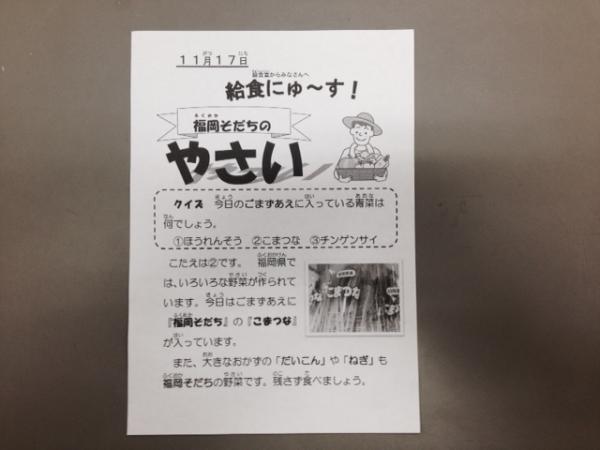 11月17日
給食室からみなさんへ
給食にゅ〜す！
福岡そだちの
やさい
クイズ　今日のごまずあえに入っている青菜は
何でしょう。
①ほうれんそう　②こまつな　③チンゲンサイ
こたえは②です。　福岡県で
は、いろいろな野菜が作られて
います。今日はごまずあえに
『福岡そだち』の『こまつな』
が入っています。
こまつな
また、大きなおかずの「だいこん」や「ねぎ」も
福岡そだちの野菜です。残さず食べましょう。